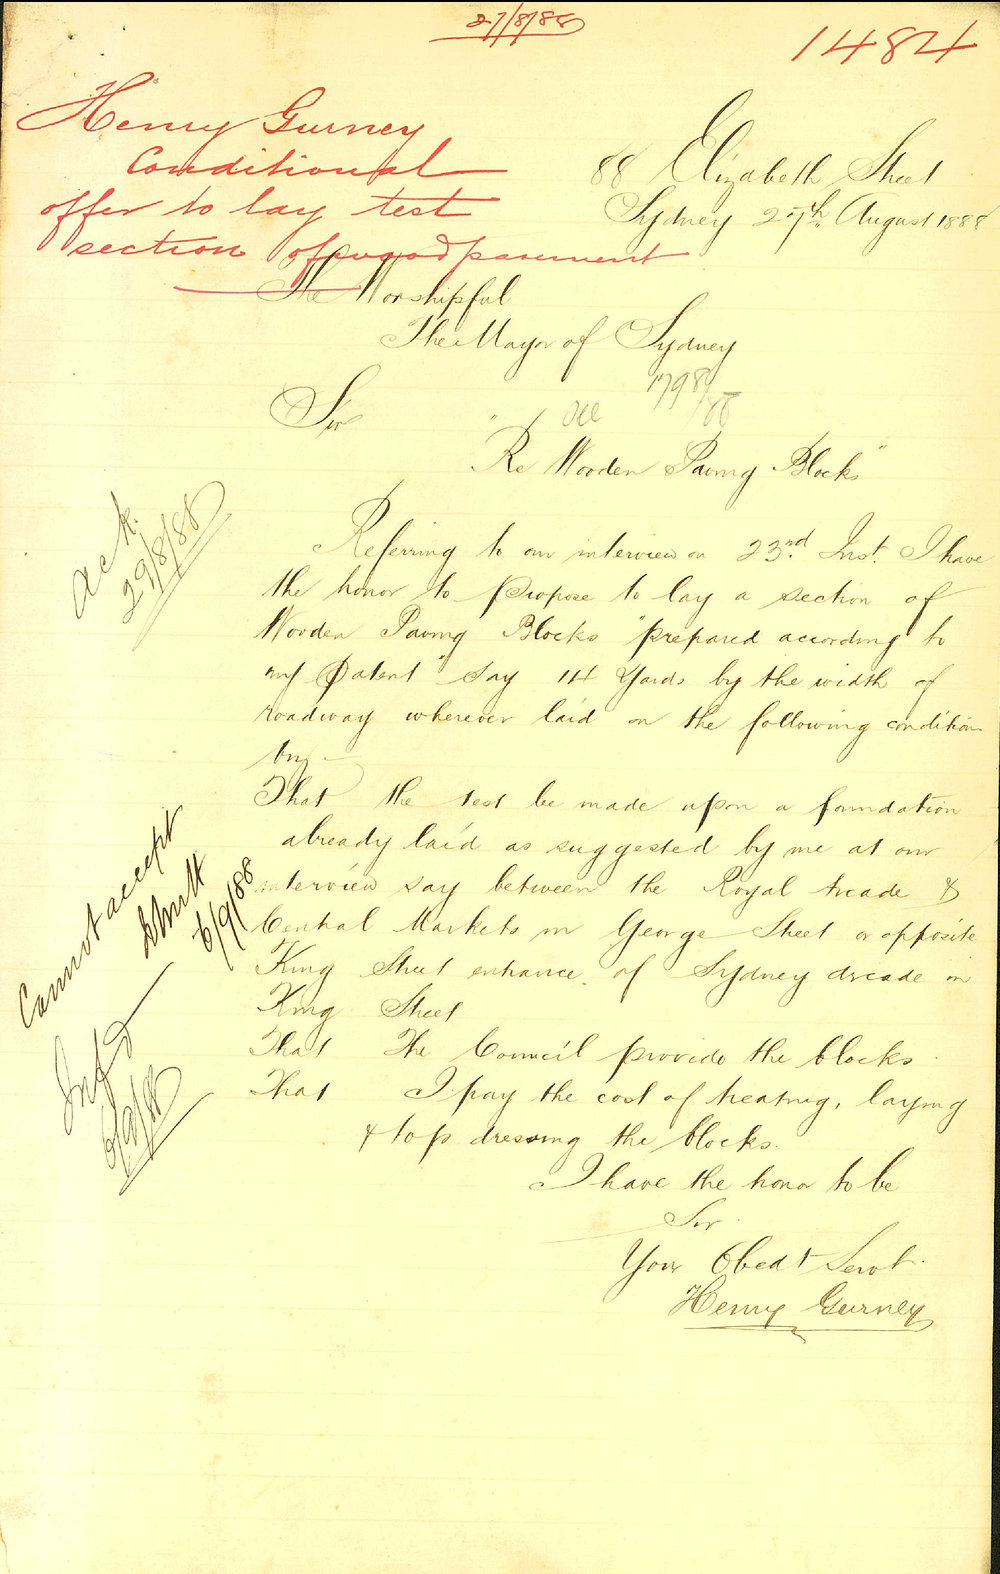 27/8/88
1484
Henry Gurney
Conditional
offer to lay test
section of wood pavement
88 Elizabeth Street
Sydney 27th August 1888
The Worshipful
The Mayor of Sydney
1798/88
Sir
"Re Wooden Paving Blocks"
Referring to our interview on 23rd Inst. I have
the honor to propose to lay a section of
Wooden Paving Blocks "prepared according to
my Patent" say 14 Yards by the width of
roadway wherever laid on the following condition
viz -
That the test be made upon a foundation
already laid as suggested by me at our
interview say between the Royal Arcade &
Central Markets in George Street or opposite
King Street entrance of Sydney Arcade in
King Street
That The Council provide the blocks.
That I pay the cost of treating, laying
& top dressing the blocks.
I have the honor to be
Sir
Your Obedt Servt.
Henry Gurney
Ack.
29/8/88
Cannot accept
6/9/88
Infd
6/9/88